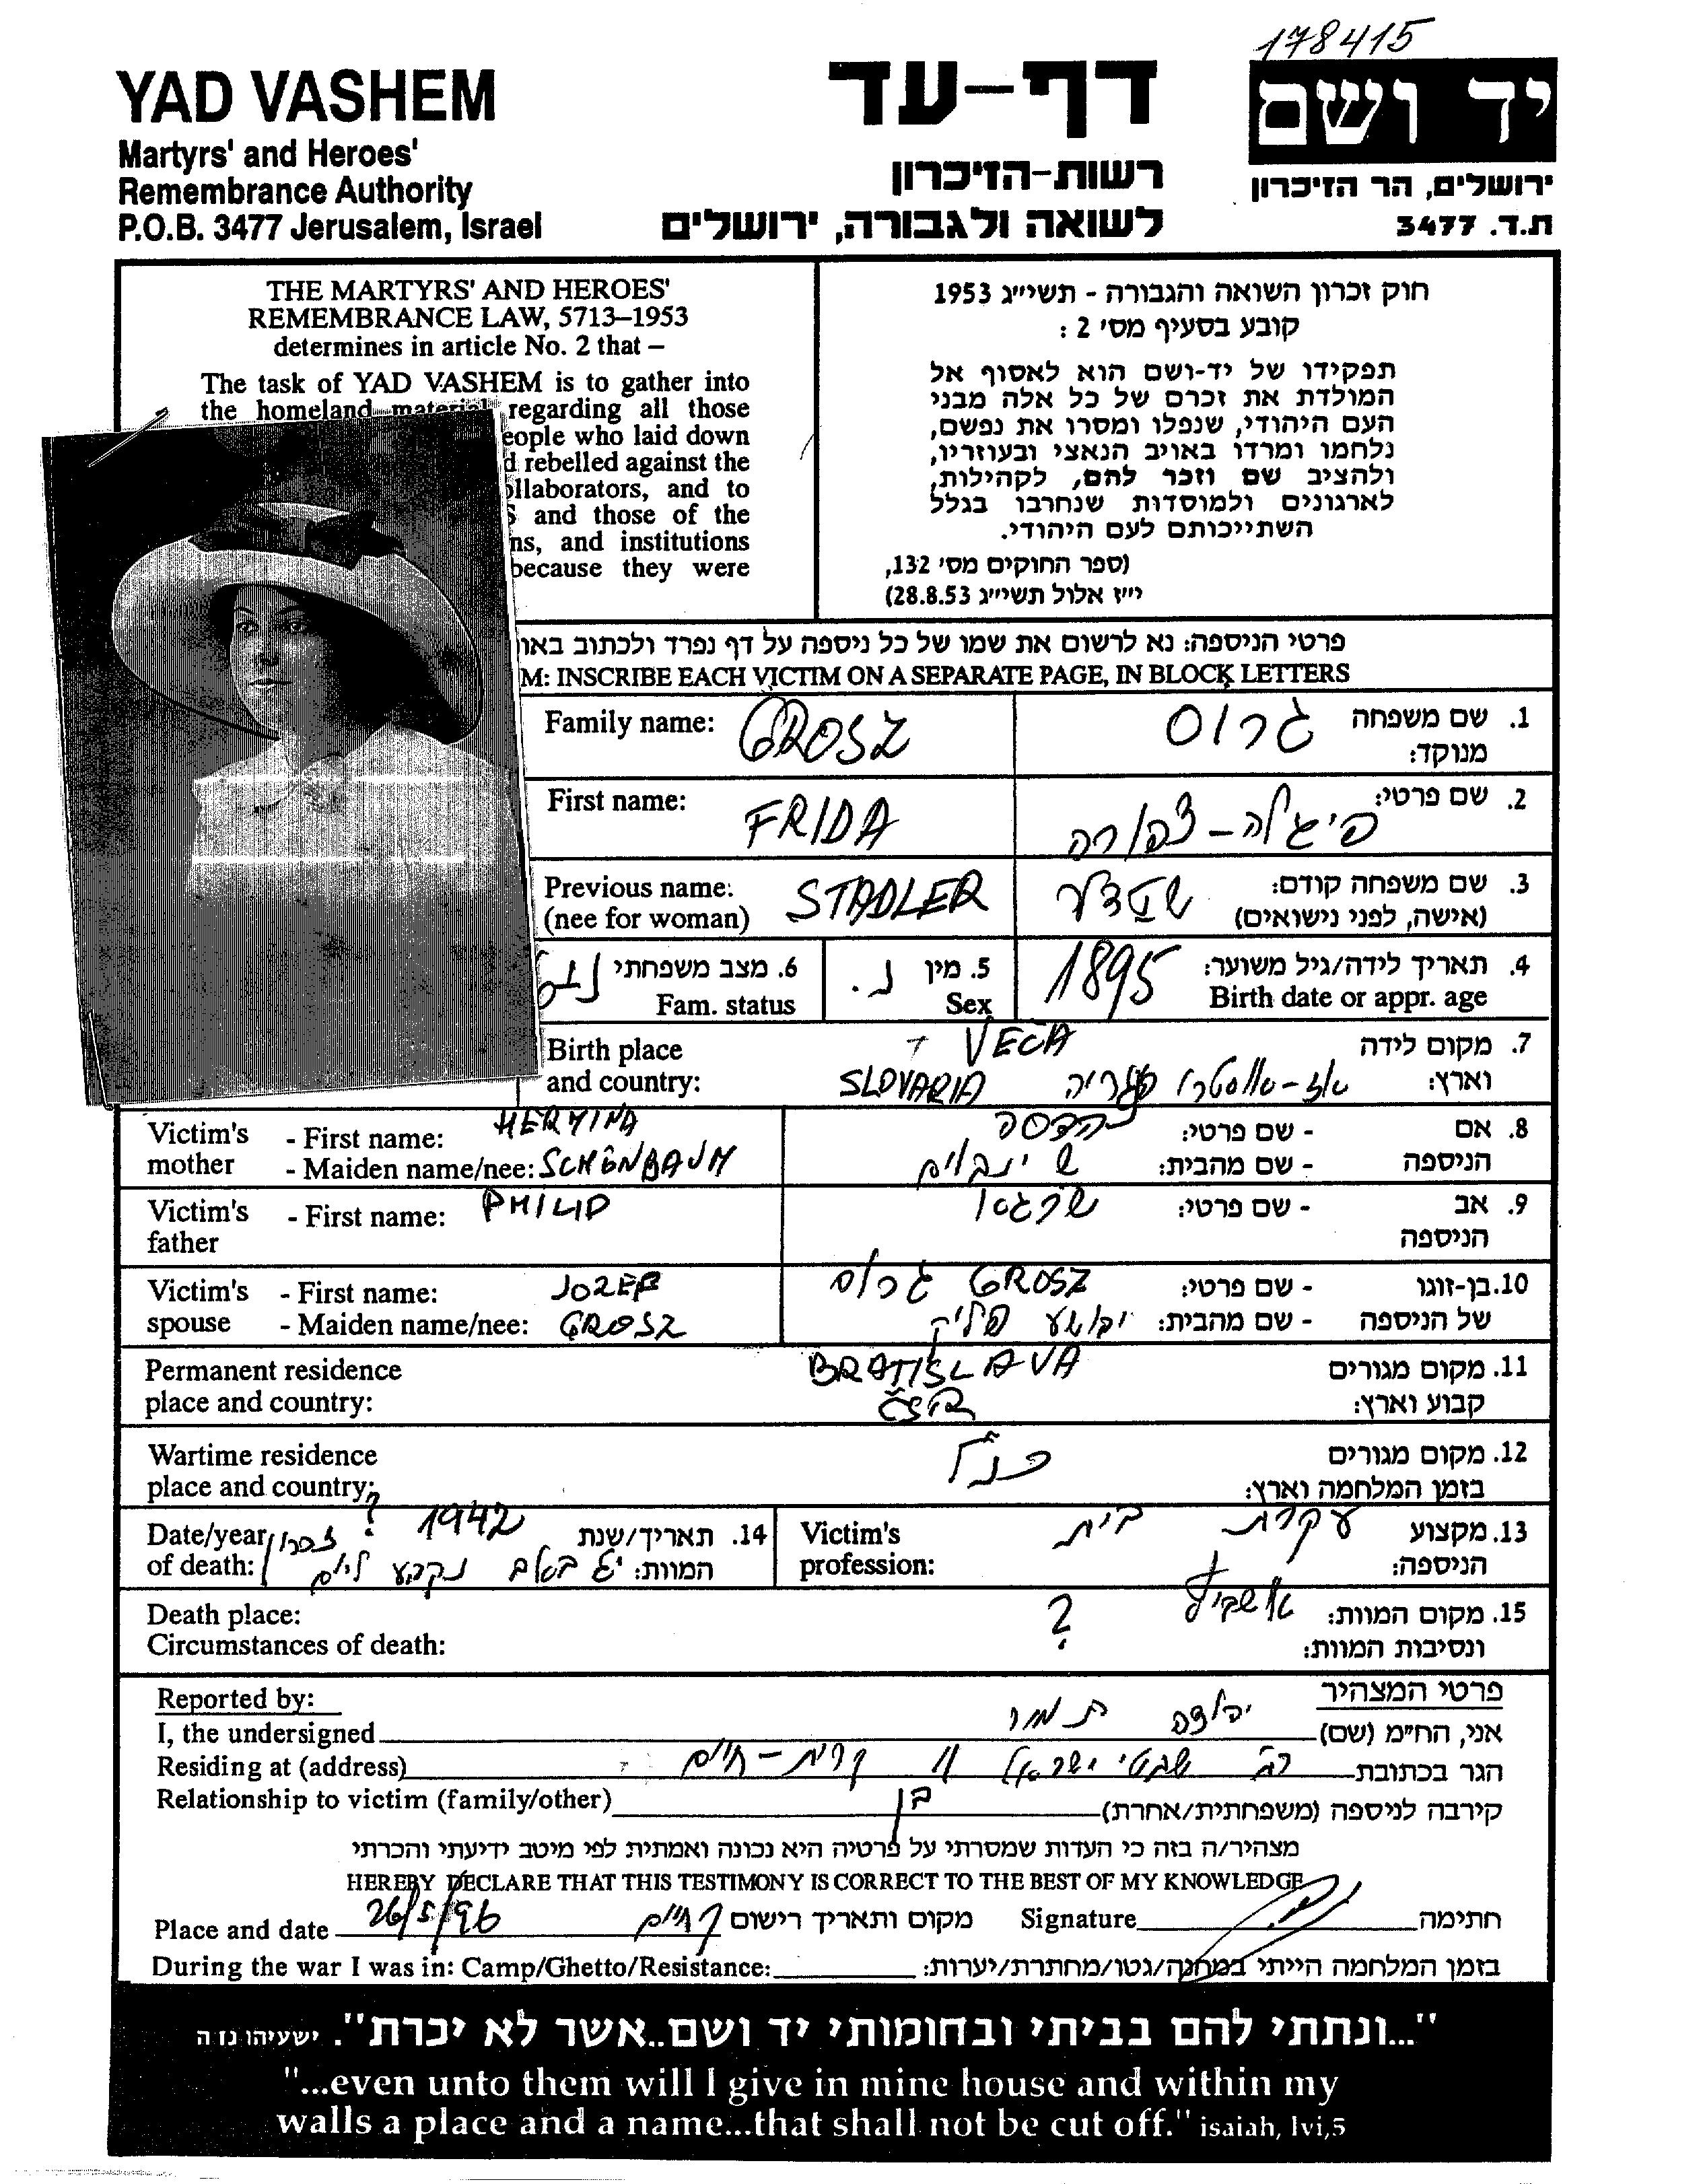 178415
YAD VASHEM
Martyrs' and Heroes'
Remembrance Authority
P.O.B. 3477 Jerusalem, Israel
דף-עד
רשות-הזיכרון
לשואה ולגבורה, ירושלים
יד ושם
ירושלים, הר הזיכרון
ת.ד. 3477
THE MARTYRS' AND HEROES'
REMEMBRANCE LAW, 5713–1953
determines in article No. 2 that –
The task of YAD VASHEM is to gather into
the homeland material regarding all those
eople who laid down
d rebelled against the
ollaborators, and to
S and those of the
ns, and institutions
because they were
חוק זכרון השואה והגבורה - תשי״ג 1953
קובע בסעיף מס׳ 2 :
תפקידו של יד-ושם הוא לאסוף אל
המולדת את זכרם של כל אלה מבני
העם היהודי, שנפלו ומסרו את נפשם,
נלחמו ומרדו באויב הנאצי ובעוזריו,
ולהציב שם וזכר להם, לקהילות,
לארגונים ולמוסדות שנחרבו בגלל
השתייכותם לעם היהודי.
(ספר החוקים מס׳ 132,
י״ז אלול תשי״ג 28.8.53)
פרטי הניספה: נא לרשום את שמו של כל ניספה על דף נפרד ולכתוב באו
M: INSCRIBE EACH VICTIM ON A SEPARATE PAGE, IN BLOCK LETTERS
Family name: GROSZ גרוס 1. שם משפחה
מנוקד:
First name: FRIDA פיגלה-צפורה 2. שם פרטי:
Previous name: STADLER שטדלר 3. שם משפחה קודם:
(nee for woman) (אישה, לפני נישואים)
6. מצב משפחתי 5. מין נ. 1895 4. תאריך לידה/גיל משוער:
Fam. status Sex Birth date or appr. age
Birth place VEČA 7. מקום לידה
and country: SLOVAKIA אז-אוסטרו הונגריה וארץ:
Victim's - First name: HERMINA הדסה - שם פרטי: 8. אם
mother - Maiden name/nee: SCHÖNBAUM שינבוים - שם מהבית: הניספה
Victim's - First name: PHILIP שרגא - שם פרטי: 9. אב
father הניספה
Victim's - First name: JOZEF גרוס GROSZ - שם פרטי: 10. בן-זוגו
spouse - Maiden name/nee: GROSZ - שם מהבית: של הניספה
Permanent residence BRATISLAVA 11. מקום מגורים
place and country: ČSR קבוע וארץ:
Wartime residence כנ"ל 12. מקום מגורים
place and country: בזמן המלחמה וארץ:
Date/year ? 1942 14. תאריך/שנת
of death: המוות:
Victim's עקרת בית 13. מקצוע
profession: הניספה:
Death place: ? אושביץ 15. מקום המוות:
Circumstances of death: ונסיבות המוות:
Reported by: פרטי המצהיר
I, the undersigned אני, החי״מ (שם)
Residing at (address) רח' שבטי ישראל 11 קרית-חיים הגר בכתובת
Relationship to victim (family/other) בן קירבה לניספה (משפחתית/אחרת)
מצהיר/ה בזה כי העדות שמסרתי על פרטיה היא נכונה ואמתית לפי מיטב ידיעתי והכרתי
HEREBY DECLARE THAT THIS TESTIMONY IS CORRECT TO THE BEST OF MY KNOWLEDGE
Place and date 26/5/96 ק חיים מקום ותאריך רישום Signature חתימה
During the war I was in: Camp/Ghetto/Resistance: בזמן המלחמה הייתי במחנה/גטו/מחתרת/יערות:
"...ונתתי להם בביתי ובחומותי יד ושם..אשר לא יכרת". ישעיהו נו ה
"...even unto them will I give in mine house and within my
walls a place and a name...that shall not be cut off." isaiah, lvi,5